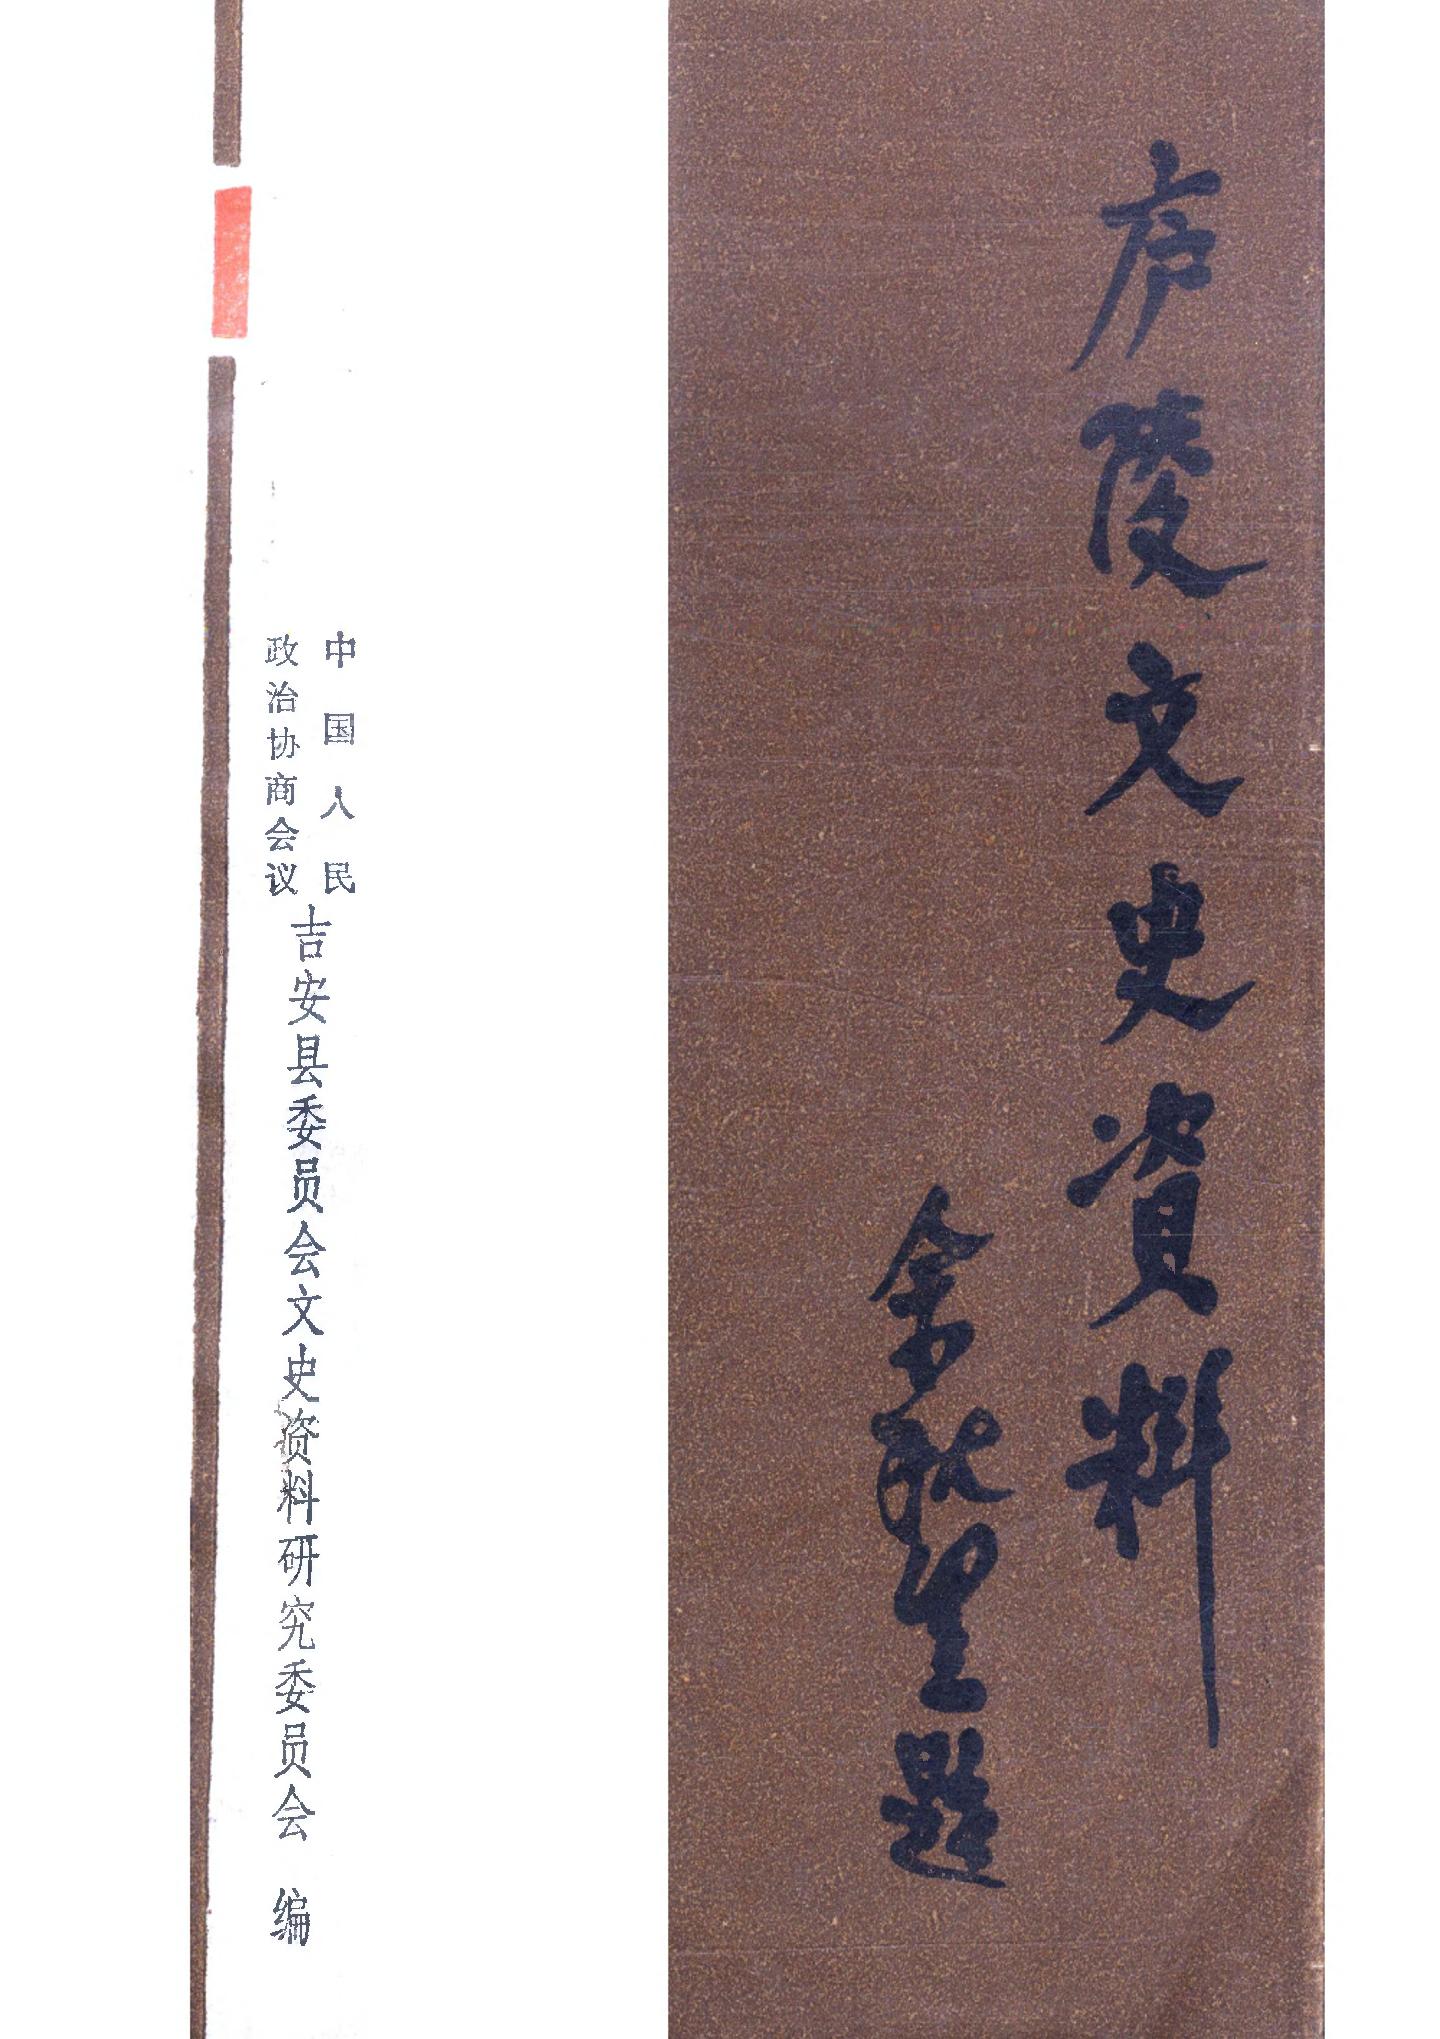 庐陵文史资料
余秋里题
中国人民
政治协商会议
吉安县委员会文史资料研究委员会 编